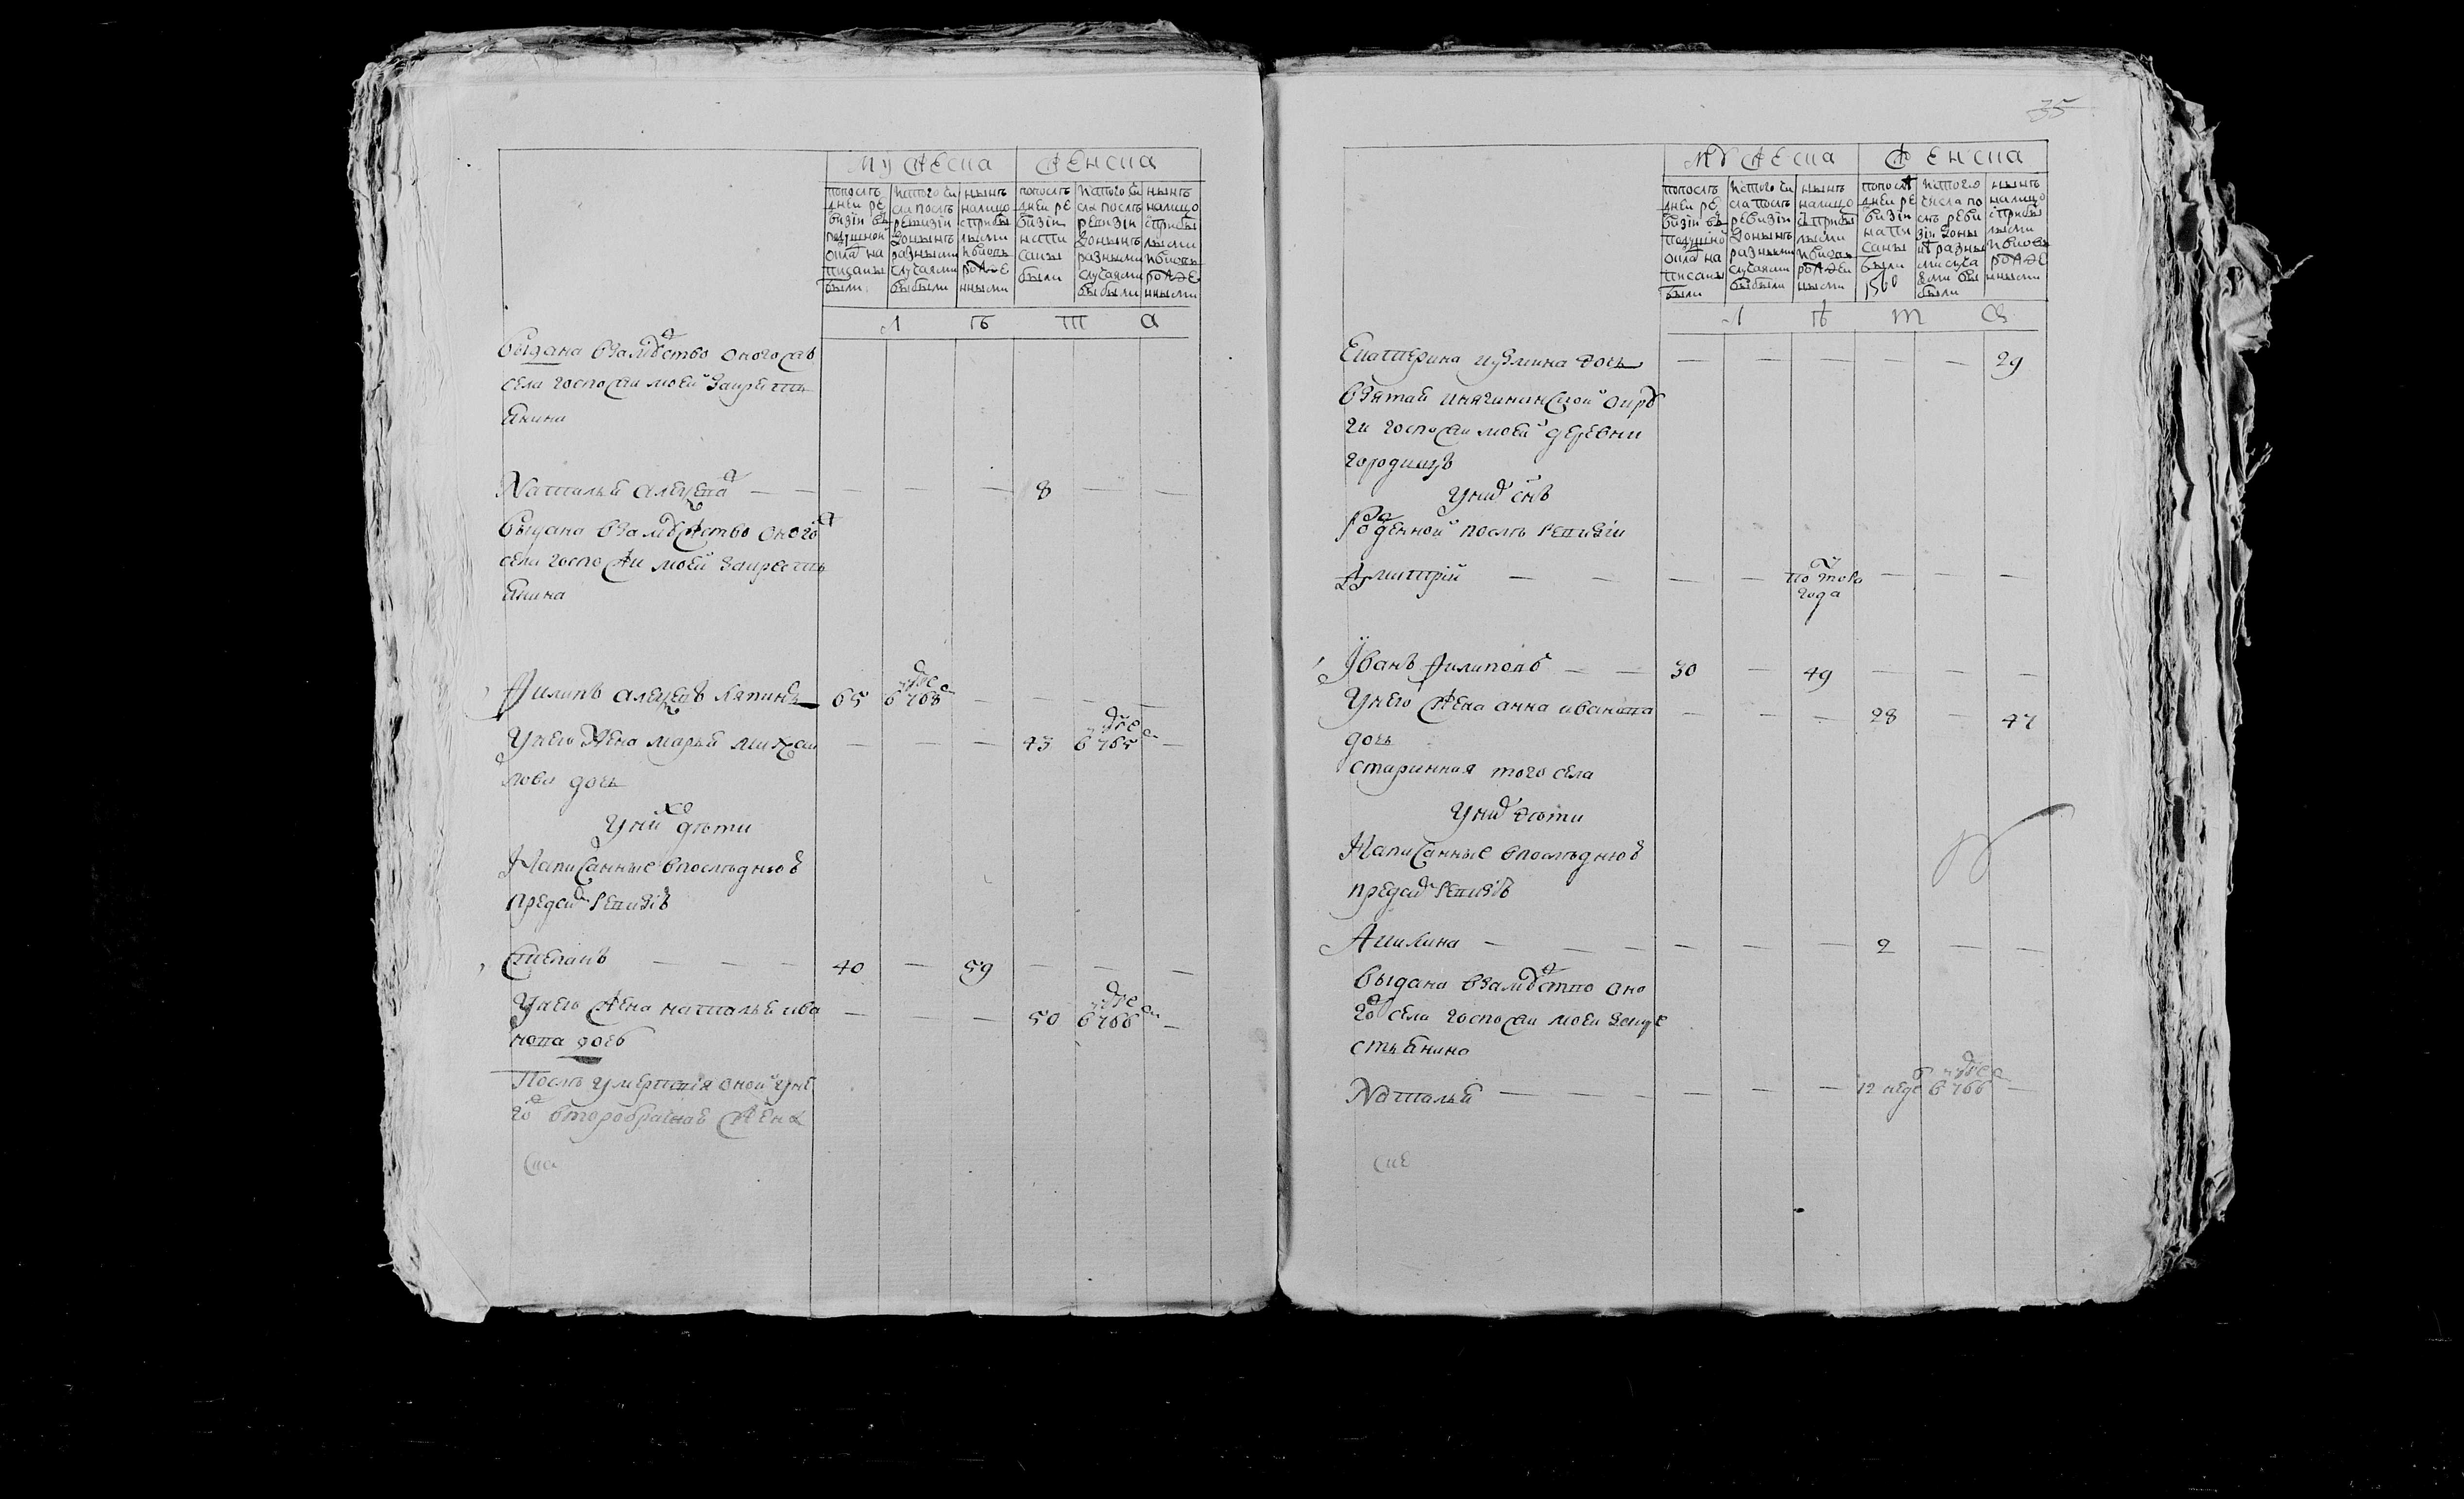 мужеска женска
попослѣ дней ре визіи въ подушной окла на писаны были
исътого чи сла послѣ ревизіи доныне разными случаями выбыли
нынѣ налицо сприбы лыми ивновь рожде нными
попослѣ дней ре визіи напи саны были
исътого чи сла послѣ ревизіи доныне разными случаями выбыли
нынѣ налицо сприбы лыми ивновь рожде нными
л ѣ т а
выдана взамужство оного
села госпожи моей закресть
янина
Наталья алексева — — — — — 8 — —
выдана взамужство оного
села госпожи моей закресть
янина
Филипъ алексевъ 65 в 768 — — — —
Унего жена марья михаи — — — 43 в 765 —
лова дочь
Уних дети
Написанные впоследнюю
предсим ревизию
Степанъ — — — 40 — 59 — — —
Унего жена наталья ива — — — 50 в 766 —
нова дочь
После умертвия оной уне
го второбрашная жена
35
мужеска женска
попослѣ дней ре визіи въ подушной окла на писаны были
исътого чи сла послѣ ревизіи доныне разными случаями выбыли
нынѣ налицо сприбы лыми ивновь рожден ными
попослѣ дней ре визіи напи саны были
исътого числа по слѣ реви зіи доны нѣ разны ми случа ями вы были
нынѣ налицо сприбы лыми ивновь рожде нными
л ѣ т а
Екатерина кузмина дочь — — — — — 29
взятая княгининской округи
госпожи моей деревни
городищъ
Уних сынъ
Рожденной послѣ ревизіи
Дмитрій — — — — полтора года — — —
Иванъ Филиповъ — — 30 — 49 — — —
Унего жена анна иванова — — — 28 — 47
дочь
старинная того села
Уних дети
Написанные впоследнюю
предсим ревизию
Акилина — — — — — — 2 — —
выдана взамужство оно
го села госпожи моей закре
стьянина
Наталья — — — — — — 12 неде в 766 —